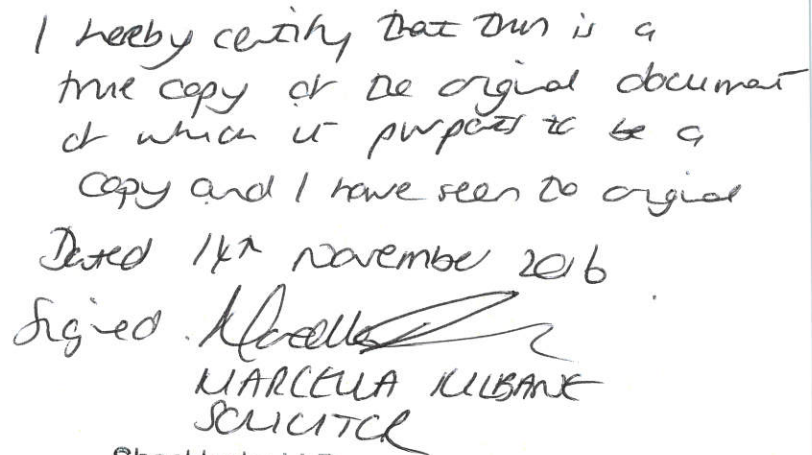 I hereby certify that this is a
true copy of the original document
of which it purports to be a
copy and I have seen the original
Dated 14th November 2016
Signed Marcella
MARCELLA KILBANE
SOLICITOR